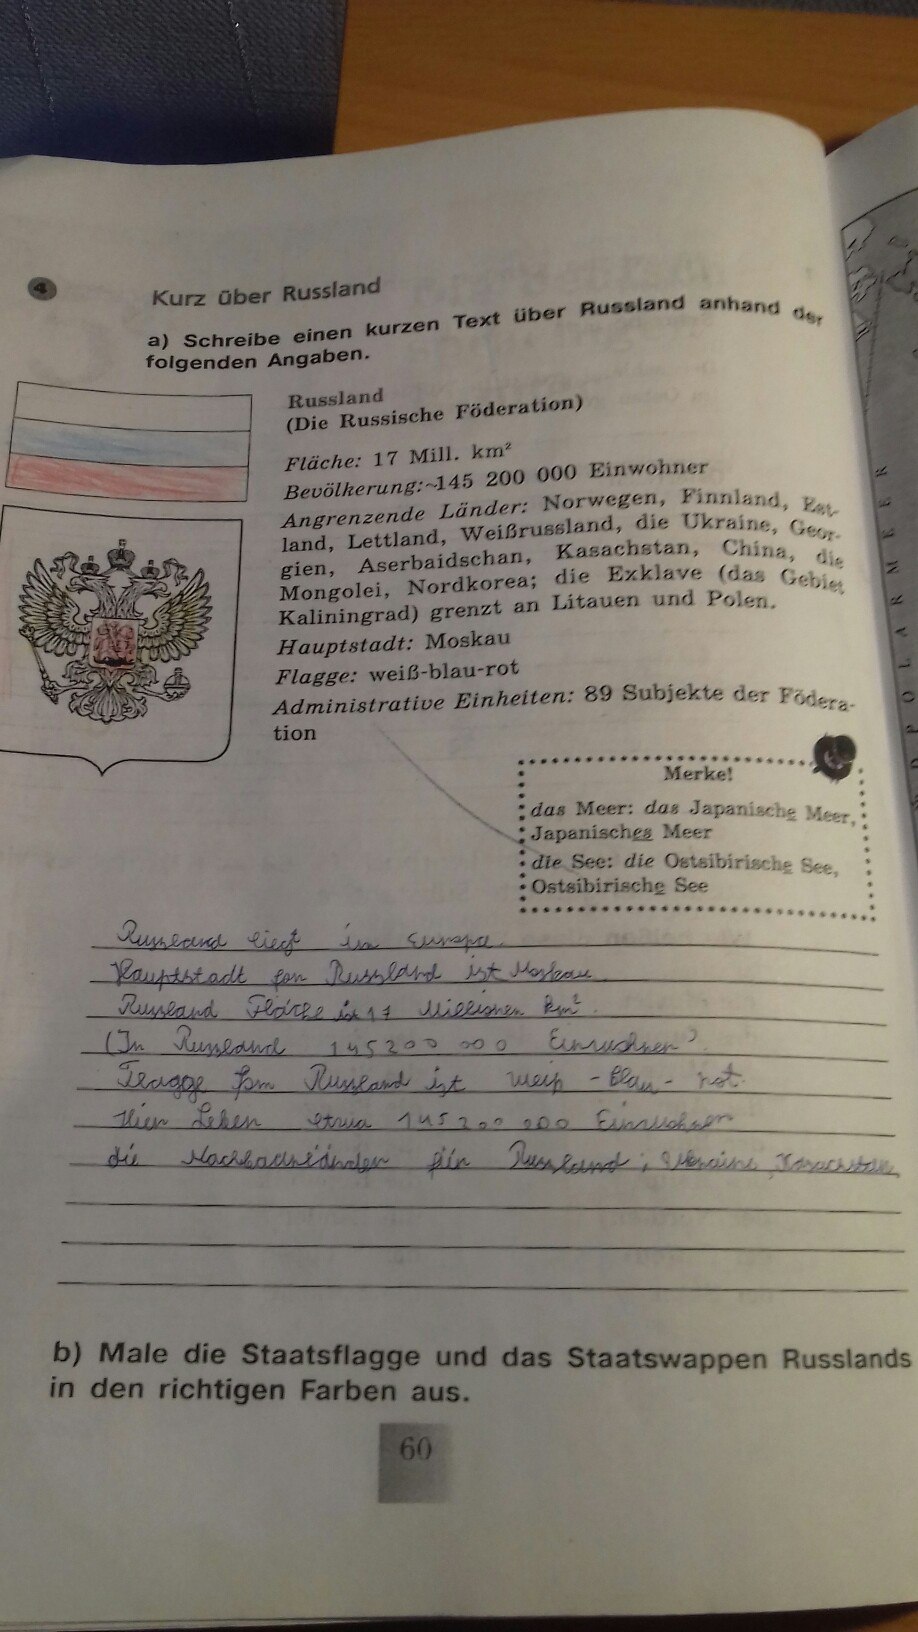 4
Kurz über Russland
a) Schreibe einen kurzen Text über Russland anhand der
folgenden Angaben.
Russland
(Die Russische Föderation)
Fläche: 17 Mill. km²
Bevölkerung: ~145 200 000 Einwohner
Angrenzende Länder: Norwegen, Finnland, Est-
land, Lettland, Weißrussland, die Ukraine, Geor-
gien, Aserbaidschan, Kasachstan, China, die
Mongolei, Nordkorea; die Exklave (das Gebiet
Kaliningrad) grenzt an Litauen und Polen.
Hauptstadt: Moskau
Flagge: weiß-blau-rot
Administrative Einheiten: 89 Subjekte der Födera-
tion
Merke!
das Meer: das Japanische Meer,
Japanisches Meer
die See: die Ostsibirische See,
Ostsibirische See
Russland liegt in Europa.
Hauptstadt fon Russland ist Moskau
Russland Fläche ist 17 Millionen km².
(In Russland 145200 000 Einwohner)
Flagge fon Russland ist weiß - blau - rot.
Hier Leben etwa 145200 000 Einwohner
die für Russland; Ukraine, Kasachstan,
b) Male die Staatsflagge und das Staatswappen Russlands
in den richtigen Farben aus.
60